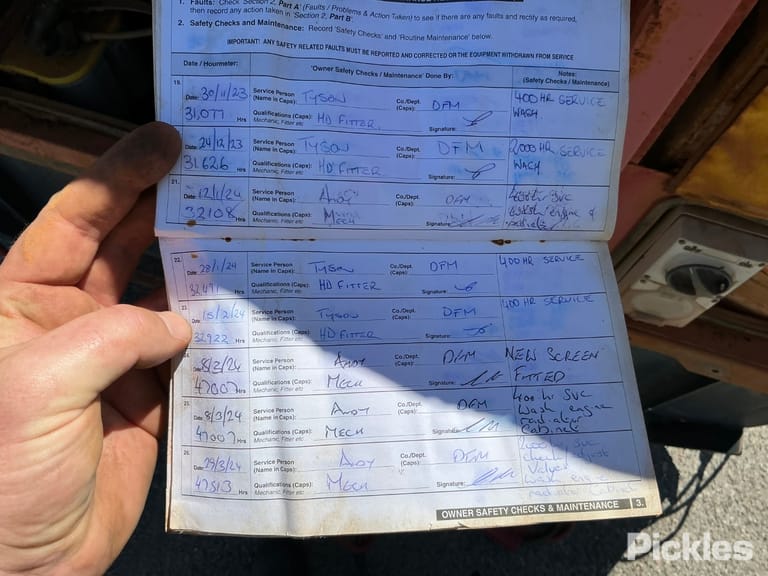 1. Faults: Check Section 2, Part A' (Faults / Problems & Action Taken) to see if there are any faults and rectify as required,
then record any action taken in 'Section 2, Part B'.
2. Safety Checks and Maintenance: Record 'Safety Checks' and 'Routine Maintenance' below.
IMPORTANT! ANY SAFETY RELATED FAULTS MUST BE REPORTED AND CORRECTED OR THE EQUIPMENT WITHDRAWN FROM SERVICE
Date / Hourmeter: 'Owner Safety Checks / Maintenance' Done By: Notes:
(Safety Checks / Maintenance)
19.
Date: 30/11/23 Service Person (Name in Caps): TYSON Co./Dept. (Caps): DFM 400 HR SERVICE
31,077 Hrs Qualifications (Caps) Mechanic, Fitter etc HD FITTER Signature: WASH.
Date: 24/12/23 Service Person (Name in Caps): TYSON Co./Dept. (Caps): DFM 2,000 HR SERVICE
31626 Hrs Qualifications (Caps) Mechanic, Fitter etc HD FITTER Signature: WASH
21.
Date: 12/1/24 Service Person (Name in Caps): ANDY Co./Dept. (Caps): DFM 400 hr SVC
32108 Hrs Qualifications (Caps) Mechanic, Fitter etc MECH Signature: wash engine &
22.
Date: 28/1/24 Service Person (Name in Caps): TYSON Co./Dept. (Caps): DFM 400 HR SERVICE
32,471 Hrs Qualifications (Caps) Mechanic, Fitter etc HD FITTER Signature:
23.
Date: 15/2/24 Service Person (Name in Caps): TYSON Co./Dept. (Caps): DFM 400 HR SERVICE
32922 Hrs Qualifications (Caps) Mechanic, Fitter etc HD FITTER Signature:
Date: 8/2/24 Service Person (Name in Caps): ANDY Co./Dept. (Caps): DFM NEW SCREEN
47007 Hrs Qualifications (Caps) Mechanic, Fitter etc MECH Signature: FITTED
25.
Date: 8/3/24 Service Person (Name in Caps): ANDY Co./Dept. (Caps): DFM 400 hr SVC
wash engine
47007 Hrs Qualifications (Caps): Mechanic, Fitter etc MECH Signature: radiator
cabinets
26.
Date: 29/3/24 Service Person (Name in Caps): ANDY Co./Dept. (Caps): DFM hr SVC
check/adjust
47513 Hrs Qualifications (Caps) Mechanic, Fitter etc MECH Signature: Valves
wash engine
radiator
OWNER SAFETY CHECKS & MAINTENANCE 3.
Pickles